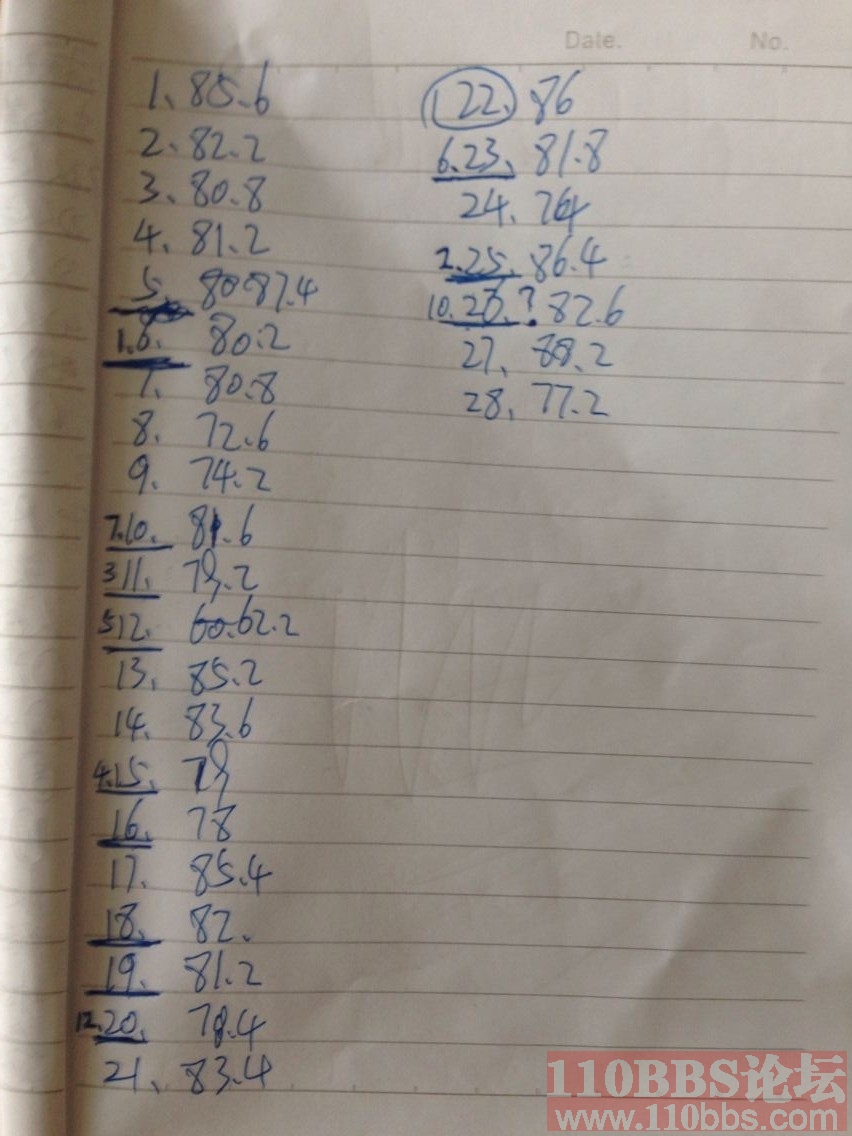 Date. No.
1、85.6
2、82.2
3、80.8
4、81.2
5、80.87.4
1.6、80.2
7、80.8
8、72.6
9、74.2
7.10、81.6
3 11、79.2
5 12、60.62.2
13、85.2
14、83.6
4.15、79
16、78
17、85.4
18、82.
19、81.2
12.20、78.4
21、83.4
1 22、86
6.23、81.8
24、764
2.25、86.4
10.26、? 82.6
27、88.2
28、77.2
110BBS论坛
www.110bbs.com